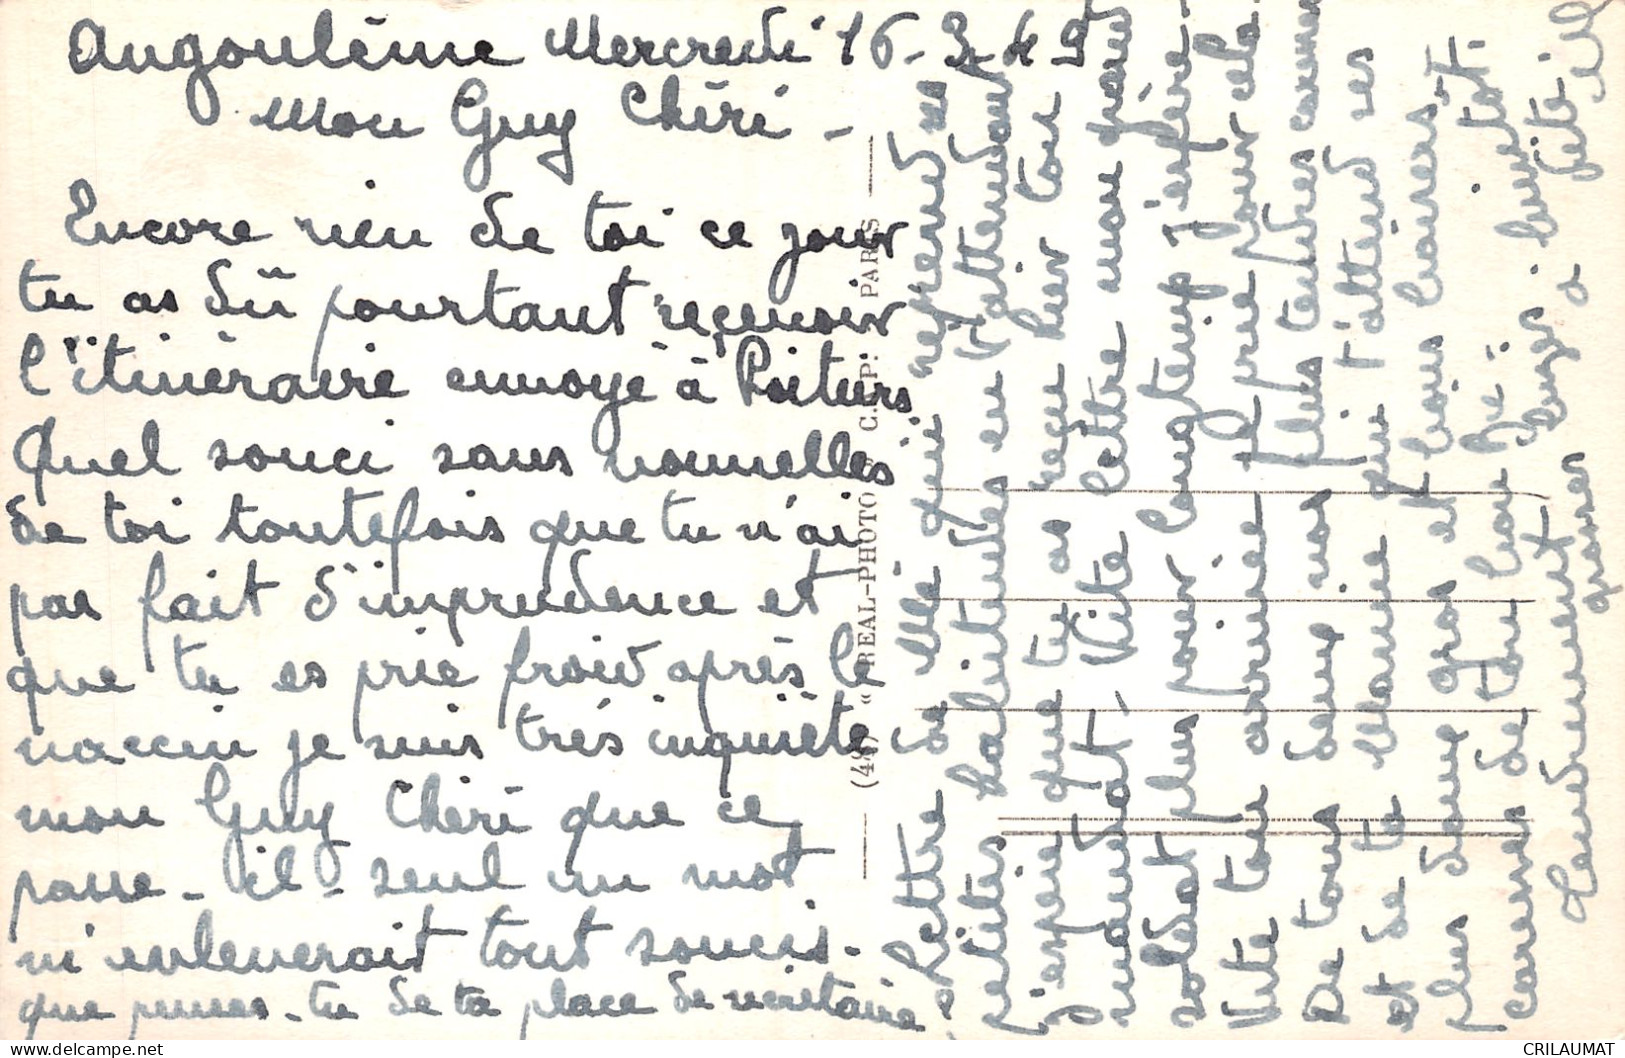 Angoulème Mercredi 16-3-49
Mon Guy Chéri -
Encore rien de toi ce jour
tu as dû pourtant reçevoir
l'itinéraire envoyé à Poitiers
Quel souci sans nouvelles
de toi toutefois que tu n'ai
pas fait d'imprudence et
que tu es prie froid après le
vaccin je suis très inquiète
mon Guy Chéri que ce
passe-il-seul un mot
m'enleverait tout soucis.
que penses-tu de ta place de secrétaire?
Lettre de Mé qui "reprend ses
petites habitudes en t'attendant
J'espère que tu as reçu hier ton
mandat. Vite lettre mon grand
soldat plus pour longtemp j'espère-
Vite ton arrivée je prie pour cela.
De tous deux nos plus tendres caresses
et de ta Mamie qui t'attend ses
plus doux gros et bons baisers
caresses de ton bon Bé: bientôt.
Tendrement
grosses bizes. bientôt
a petite
(48) « REAL-PHOTO » C.A.P. PARIS
CRILAUMAT